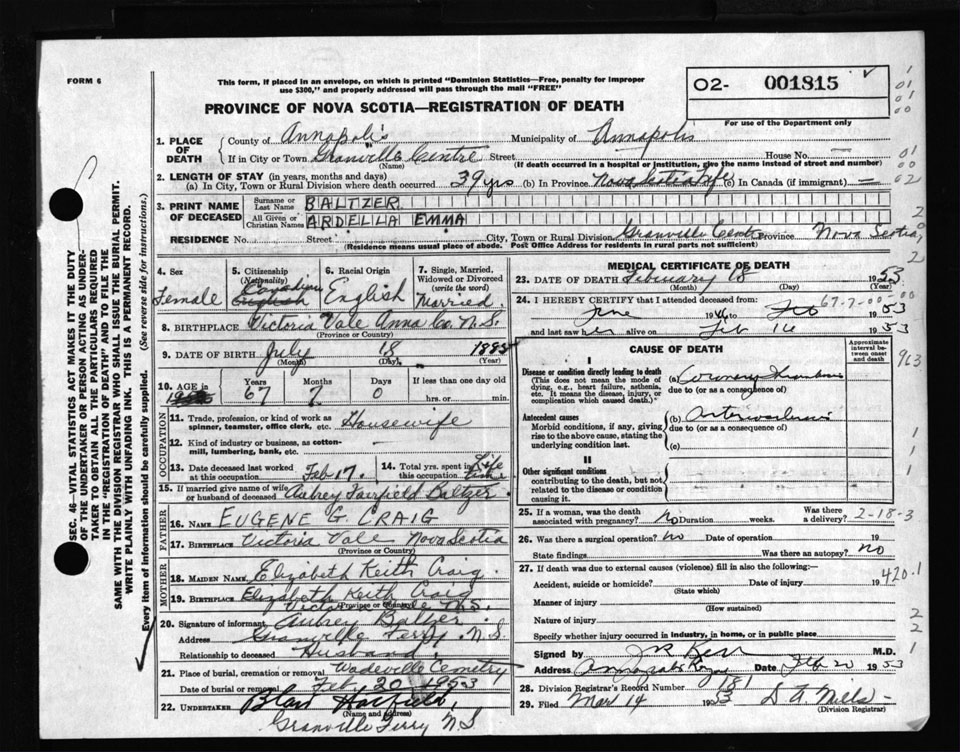 FORM 6
This form, if placed in an envelope, on which is printed "Dominion Statistics—Free, penalty for improper
use $300," and properly addressed will pass through the mail "FREE"
PROVINCE OF NOVA SCOTIA—REGISTRATION OF DEATH
O2- 001815
For use of the Department only
1. PLACE OF DEATH County of Annapolis Municipality of Annapolis
If in City or Town Granville Centre Street House No. —
(Name) (If death occurred in a hospital or institution, give the name instead of street and number)
2. LENGTH OF STAY (in years, months and days)
(a) In City, Town or Rural Division where death occurred 39 yrs (b) In Province Nova Scotia Life (c) In Canada (if immigrant) —
3. PRINT NAME OF DECEASED Surname or Last Name BALTZER
All Given or Christian Names ARDELLA EMMA
RESIDENCE No. Street City, Town or Rural Division Granville Centre Province Nova Scotia
(Residence means usual place of abode. Post Office Address for residents in rural parts not sufficient)
4. Sex Female
5. Citizenship (Nationality) Canadian English
6. Racial Origin English
7. Single, Married, Widowed or Divorced (write the word) Married
8. BIRTHPLACE Victoria Vale Anna Co. N.S.
(Province or Country)
9. DATE OF BIRTH July 18 1885
(Month) (Day) (Year)
10. AGE in Years Months Days If less than one day old
67 7 0 hrs. or min.
OCCUPATION
11. Trade, profession, or kind of work as spinner, teamster, office clerk, etc. Housewife
12. Kind of industry or business, as cotton-mill, lumbering, bank, etc.
13. Date deceased last worked at this occupation Feb 17.
14. Total yrs. spent in this occupation Life
15. If married give name of wife or husband of deceased Aubrey Fairfield Baltzer
FATHER
16. NAME EUGENE G CRAIG
17. BIRTHPLACE Victoria Vale Nova Scotia
(Province or Country)
MOTHER
18. MAIDEN NAME Elizabeth Keith Craig
19. BIRTHPLACE Elizabeth Keith Craig
Victoria Vale N.S.
(Province or Country)
20. Signature of informant Aubrey Balzer
Address Granville Ferry N.S.
Relationship to deceased Husband
21. Place of burial, cremation or removal Wadeville Cemetry
Date of burial or removal Feb 20 1953
22. UNDERTAKER Blair Hatfield
(Name and address)
Granville Ferry N S
MEDICAL CERTIFICATE OF DEATH
23. DATE OF DEATH February 18 1953
(Month) (Day)
24. I HEREBY CERTIFY that I attended deceased from 67-7-00-00
June 1946 to Feb 1953
and last saw her alive on Feb 14 1953
CAUSE OF DEATH
Approximate interval between onset and death
I
Disease or condition directly leading to death
(This does not mean the mode of dying, e.g., heart failure, asthenia, etc. It means the disease, injury, or complication which caused death.)*
(a) Coronary Thrombosis
due to (or as a consequence of)
Antecedent causes
Morbid conditions, if any, giving rise to the above cause, stating the underlying condition last.
(b) Arteriosclerosis
due to (or as a consequence of)
(c)
II
Other significant conditions
contributing to the death, but not related to the disease or condition causing it.
25. If a woman, was the death associated with pregnancy? No Duration weeks. Was there a delivery? 2-18-3
26. Was there a surgical operation? no Date of operation 19
State findings Was there an autopsy? No
27. If death was due to external causes (violence) fill in also the following:— 420.1
Accident, suicide or homicide? Date of injury 19
(State which)
Manner of injury
(How sustained)
Nature of injury
Specify whether injury occurred in industry, in home, or in public place
Signed by M.D.
Address Annapolis Royal Date Feb 20 1953
28. Division Registrar's Record Number 181
29. Filed Mar 14 1953 D. A. Mills
(Division Registrar)
963
SEC. 46—VITAL STATISTICS ACT MAKES IT THE DUTY
OF THE UNDERTAKER OR PERSON ACTING AS UNDER-
TAKER TO OBTAIN ALL THE PARTICULARS REQUIRED
IN THE "REGISTRATION OF DEATH" AND TO FILE THE
SAME WITH THE DIVISION REGISTRAR WHO SHALL ISSUE THE BURIAL PERMIT.
WRITE PLAINLY WITH UNFADING INK. THIS IS A PERMANENT RECORD.
Every item of information should be carefully supplied. (See reverse side for instructions.)